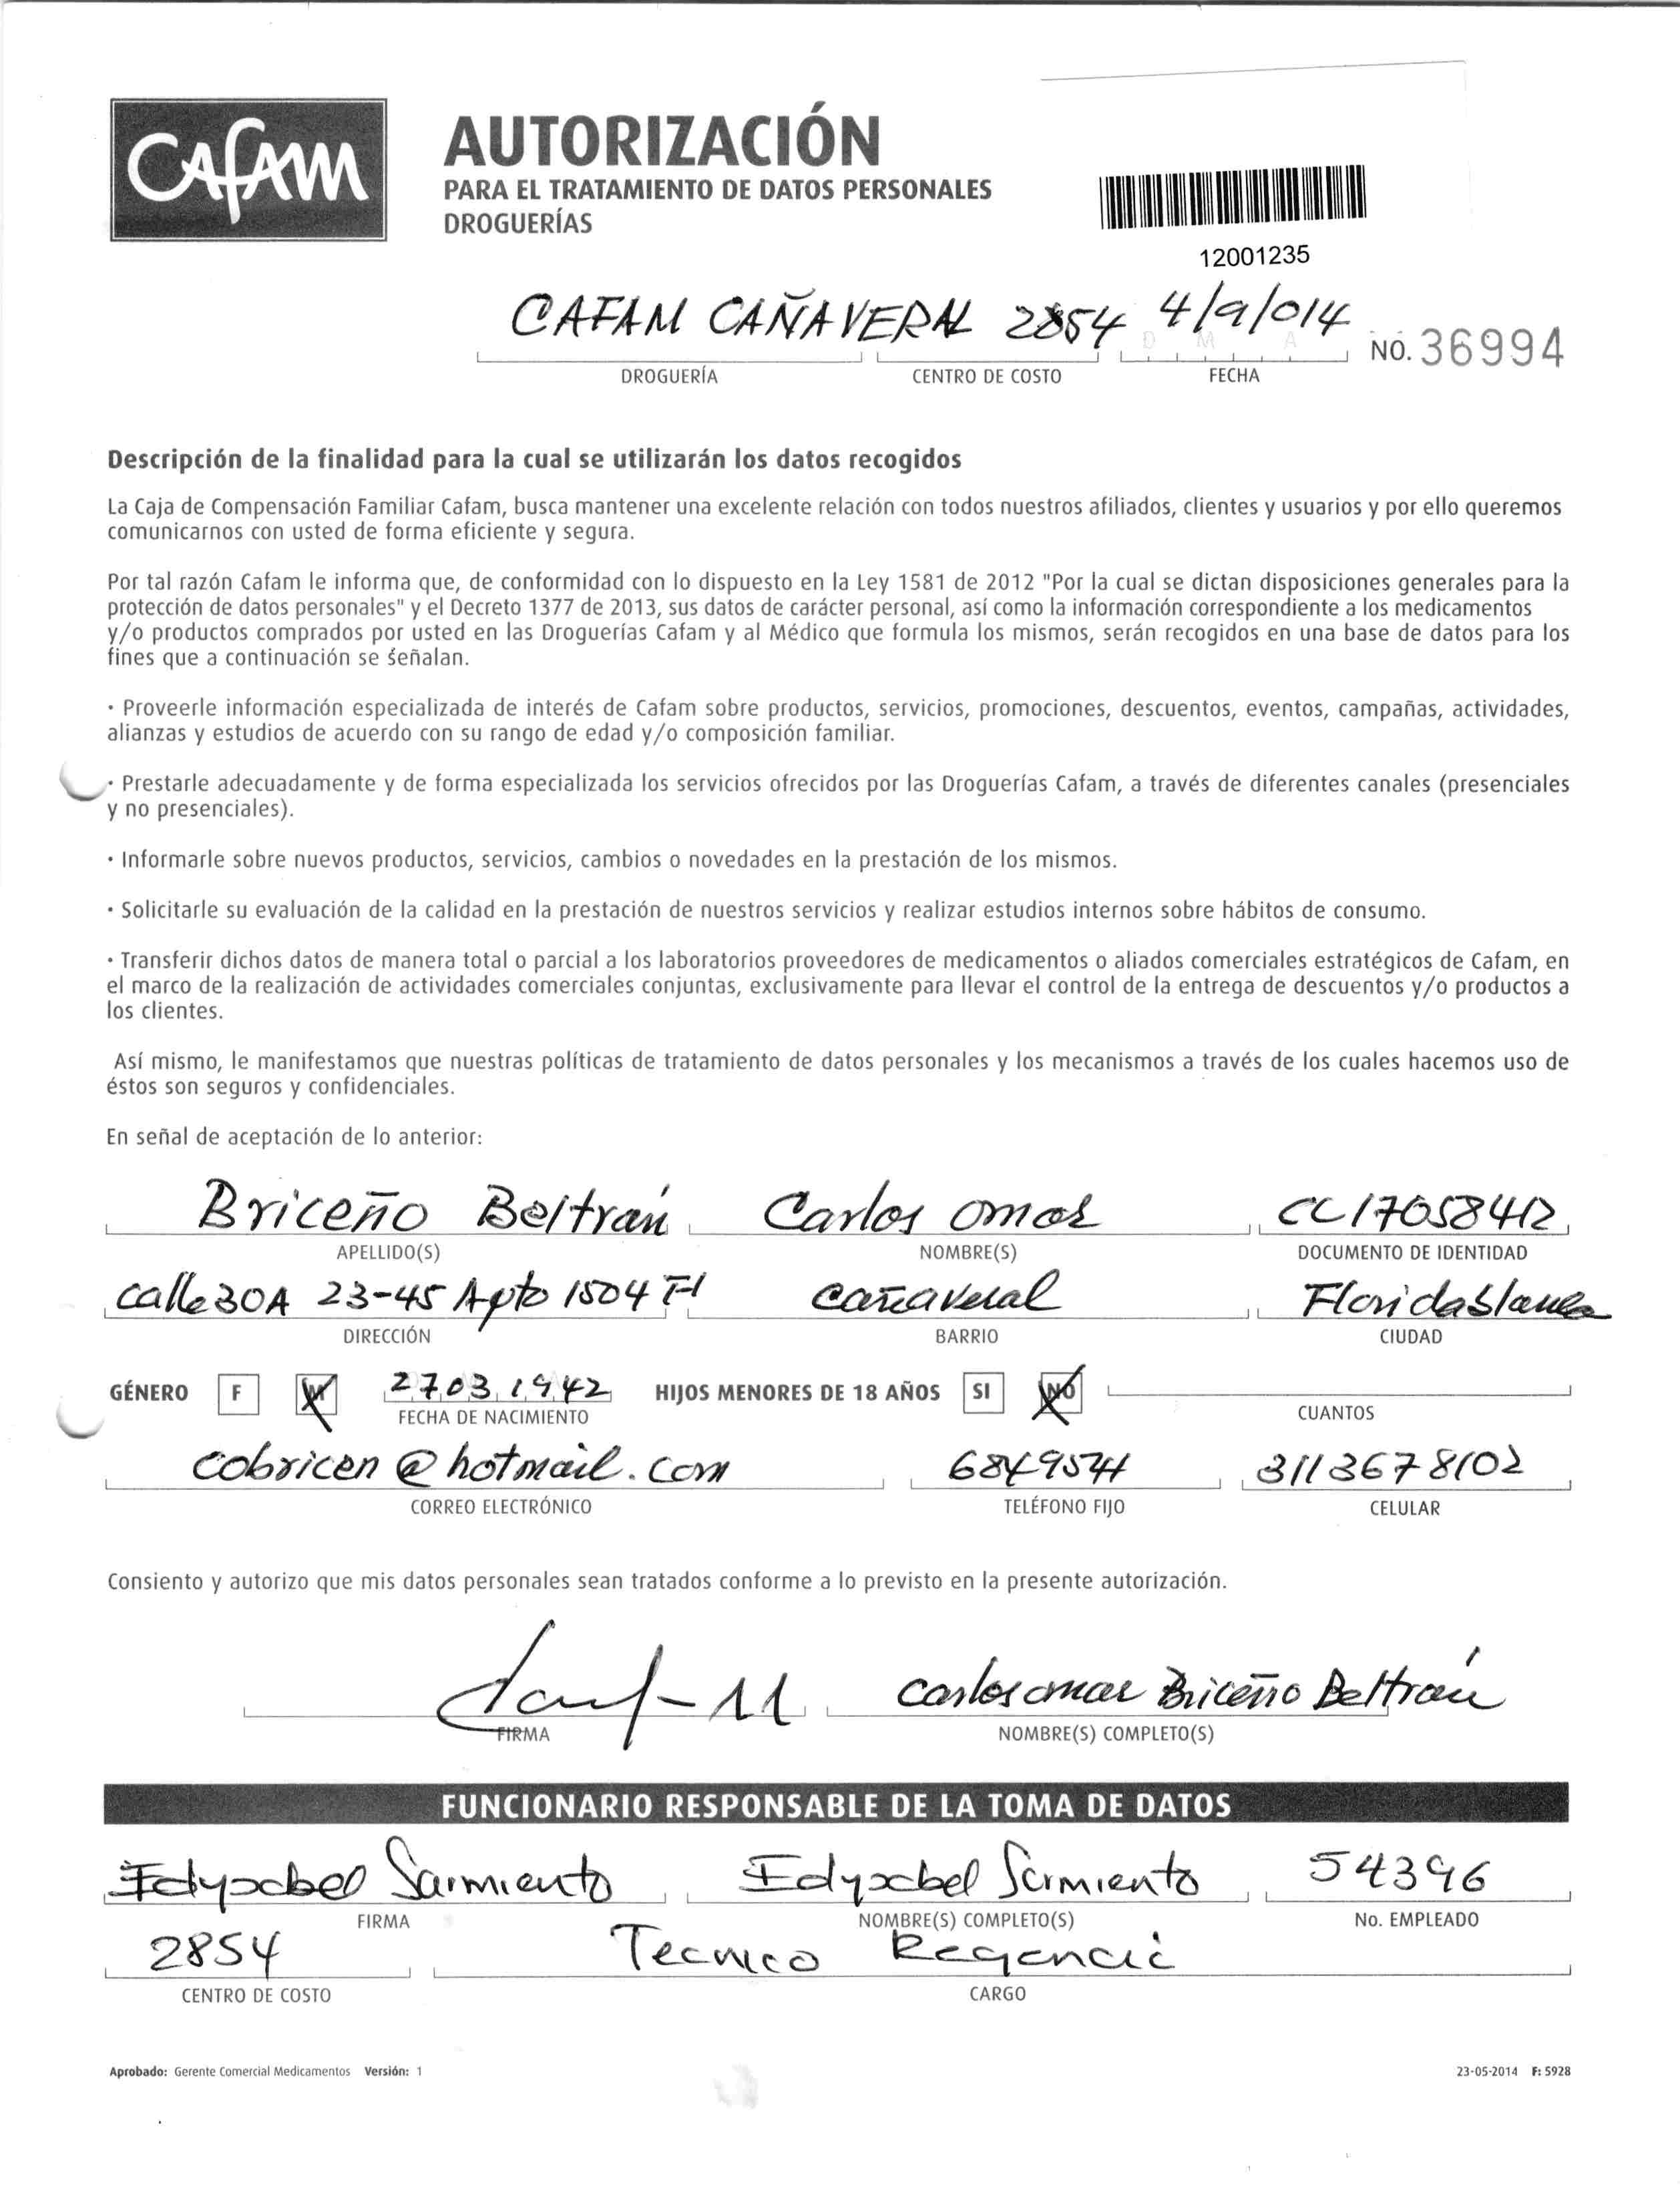 Cafam
AUTORIZACIÓN
PARA EL TRATAMIENTO DE DATOS PERSONALES
DROGUERÍAS
12001235
CAFAM CAÑAVERAL 2854 4/9/014
D M A
NO. 36994
DROGUERÍA CENTRO DE COSTO FECHA
Descripción de la finalidad para la cual se utilizarán los datos recogidos
La Caja de Compensación Familiar Cafam, busca mantener una excelente relación con todos nuestros afiliados, clientes y usuarios y por ello queremos
comunicarnos con usted de forma eficiente y segura.
Por tal razón Cafam le informa que, de conformidad con lo dispuesto en la Ley 1581 de 2012 "Por la cual se dictan disposiciones generales para la
protección de datos personales" y el Decreto 1377 de 2013, sus datos de carácter personal, así como la información correspondiente a los medicamentos
y/o productos comprados por usted en las Droguerías Cafam y al Médico que formula los mismos, serán recogidos en una base de datos para los
fines que a continuación se señalan.
· Proveerle información especializada de interés de Cafam sobre productos, servicios, promociones, descuentos, eventos, campañas, actividades,
alianzas y estudios de acuerdo con su rango de edad y/o composición familiar.
· Prestarle adecuadamente y de forma especializada los servicios ofrecidos por las Droguerías Cafam, a través de diferentes canales (presenciales
y no presenciales).
· Informarle sobre nuevos productos, servicios, cambios o novedades en la prestación de los mismos.
· Solicitarle su evaluación de la calidad en la prestación de nuestros servicios y realizar estudios internos sobre hábitos de consumo.
· Transferir dichos datos de manera total o parcial a los laboratorios proveedores de medicamentos o aliados comerciales estratégicos de Cafam, en
el marco de la realización de actividades comerciales conjuntas, exclusivamente para llevar el control de la entrega de descuentos y/o productos a
los clientes.
Así mismo, le manifestamos que nuestras políticas de tratamiento de datos personales y los mecanismos a través de los cuales hacemos uso de
éstos son seguros y confidenciales.
En señal de aceptación de lo anterior:
Briceño Beltrán Carlos Omar CC 17058412
APELLIDO(S) NOMBRE(S) DOCUMENTO DE IDENTIDAD
Calle 30A 23-45 Apto 1504 Cañaveral Floridablanca
DIRECCIÓN BARRIO CIUDAD
GÉNERO F M 27 03 1942 HIJOS MENORES DE 18 AÑOS SI NO
FECHA DE NACIMIENTO CUANTOS
cobricen@hotmail.com 6849574 3113678102
CORREO ELECTRÓNICO TELÉFONO FIJO CELULAR
Consiento y autorizo que mis datos personales sean tratados conforme a lo previsto en la presente autorización.
Carlos Omar Briceño Beltrán
FIRMA NOMBRE(S) COMPLETO(S)
FUNCIONARIO RESPONSABLE DE LA TOMA DE DATOS
Edyxabel Sarmiento Edyxabel Sarmiento 54396
FIRMA NOMBRE(S) COMPLETO(S) No. EMPLEADO
2854 Tecnico Regencia
CENTRO DE COSTO CARGO
Aprobado: Gerente Comercial Medicamentos Versión: 1 23-05-2014 F: 5928